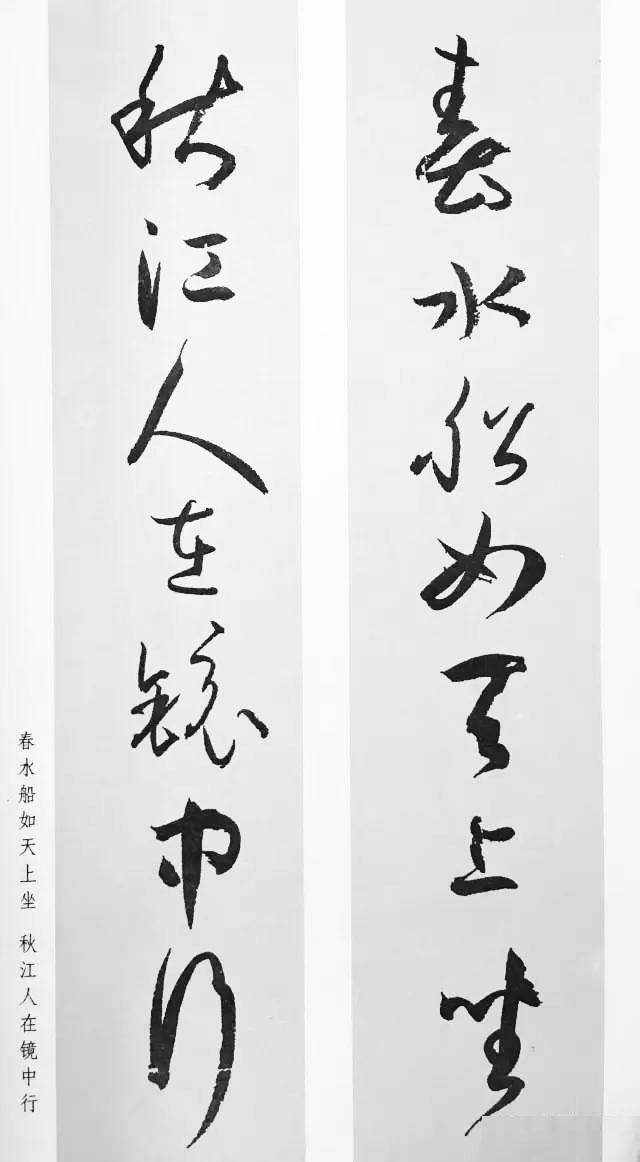 春水船如天上坐
秋江人在镜中行
春水船如天上坐 秋江人在镜中行